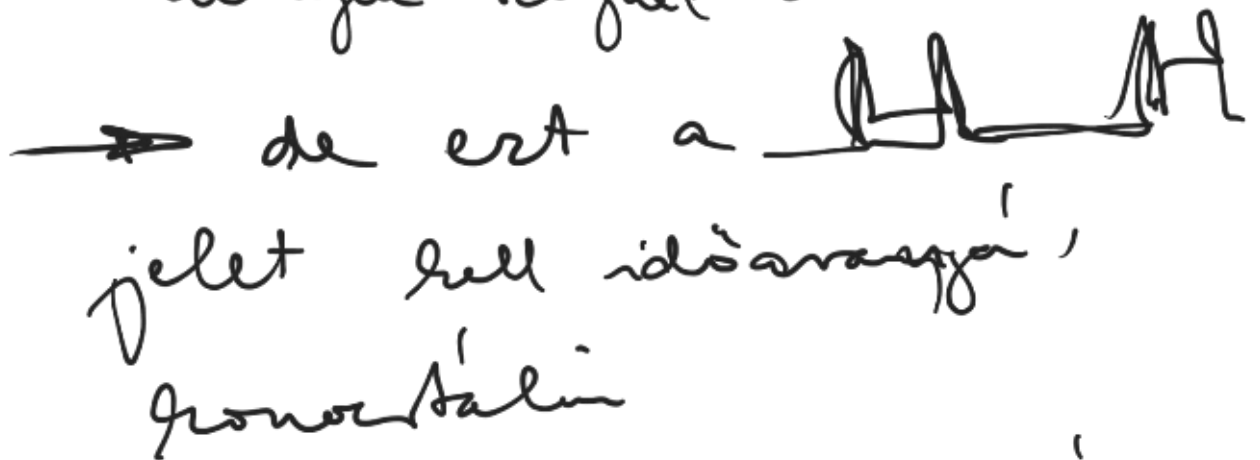 → de ezt a
jelet kell időaránnyá
konvertálni